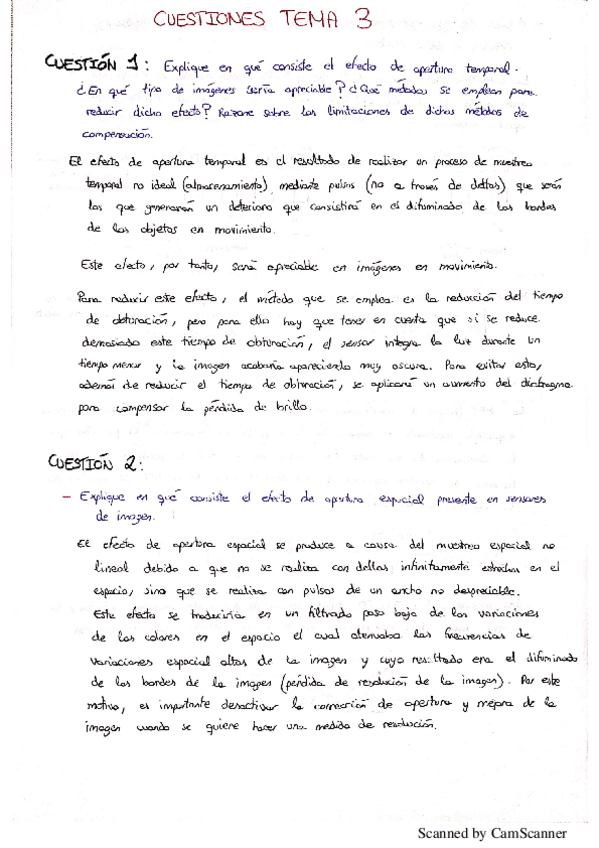 CUESTIONES TEMA 3
CUESTIÓN 1: Explique en qué consiste el efecto de apertura temporal.
¿En qué tipo de imágenes sería apreciable? ¿Qué métodos se emplean para
reducir dicho efecto? Razone sobre las limitaciones de dichos métodos de
compensación.
El efecto de apertura temporal es el resultado de realizar un proceso de muestreo
temporal no ideal (almacenamiento) mediante pulsos (no a través de deltas) que serán
los que generarán un deterioro que consistirá en el difuminado de los bordes
de los objetos en movimiento.
Este efecto, por tanto, será apreciable en imágenes en movimiento.
Para reducir este efecto, el método que se emplea es la reducción del tiempo
de obturación, pero para ello hay que tener en cuenta que si se reduce
demasiado este tiempo de obturación, el sensor integra la luz durante un
tiempo menor y la imagen acabaría apareciendo muy oscura. Para evitar esto,
además de reducir el tiempo de obturación, se aplicará un aumento del diafragma
para compensar la pérdida de brillo.
CUESTIÓN 2:
- Explique en qué consiste el efecto de apertura espacial presente en sensores
de imagen.
El efecto de apertura espacial se produce a causa del muestreo espacial no
lineal debido a que no se realiza con deltas infinitamente estrechas en el
espacio, sino que se realiza con pulsos de un ancho no despreciable.
Este efecto se traduciría en un filtrado paso bajo de las variaciones
de los colores en el espacio el cual atenuaba las frecuencias de
variaciones espacial altas de la imagen y cuyo resultado era el difuminado
de los bordes de la imagen (pérdida de resolución de la imagen). Por este
motivo, es importante desactivar la corrección de apertura y mejora de la
imagen cuando se quiere hacer una medida de resolución.
Scanned by CamScanner